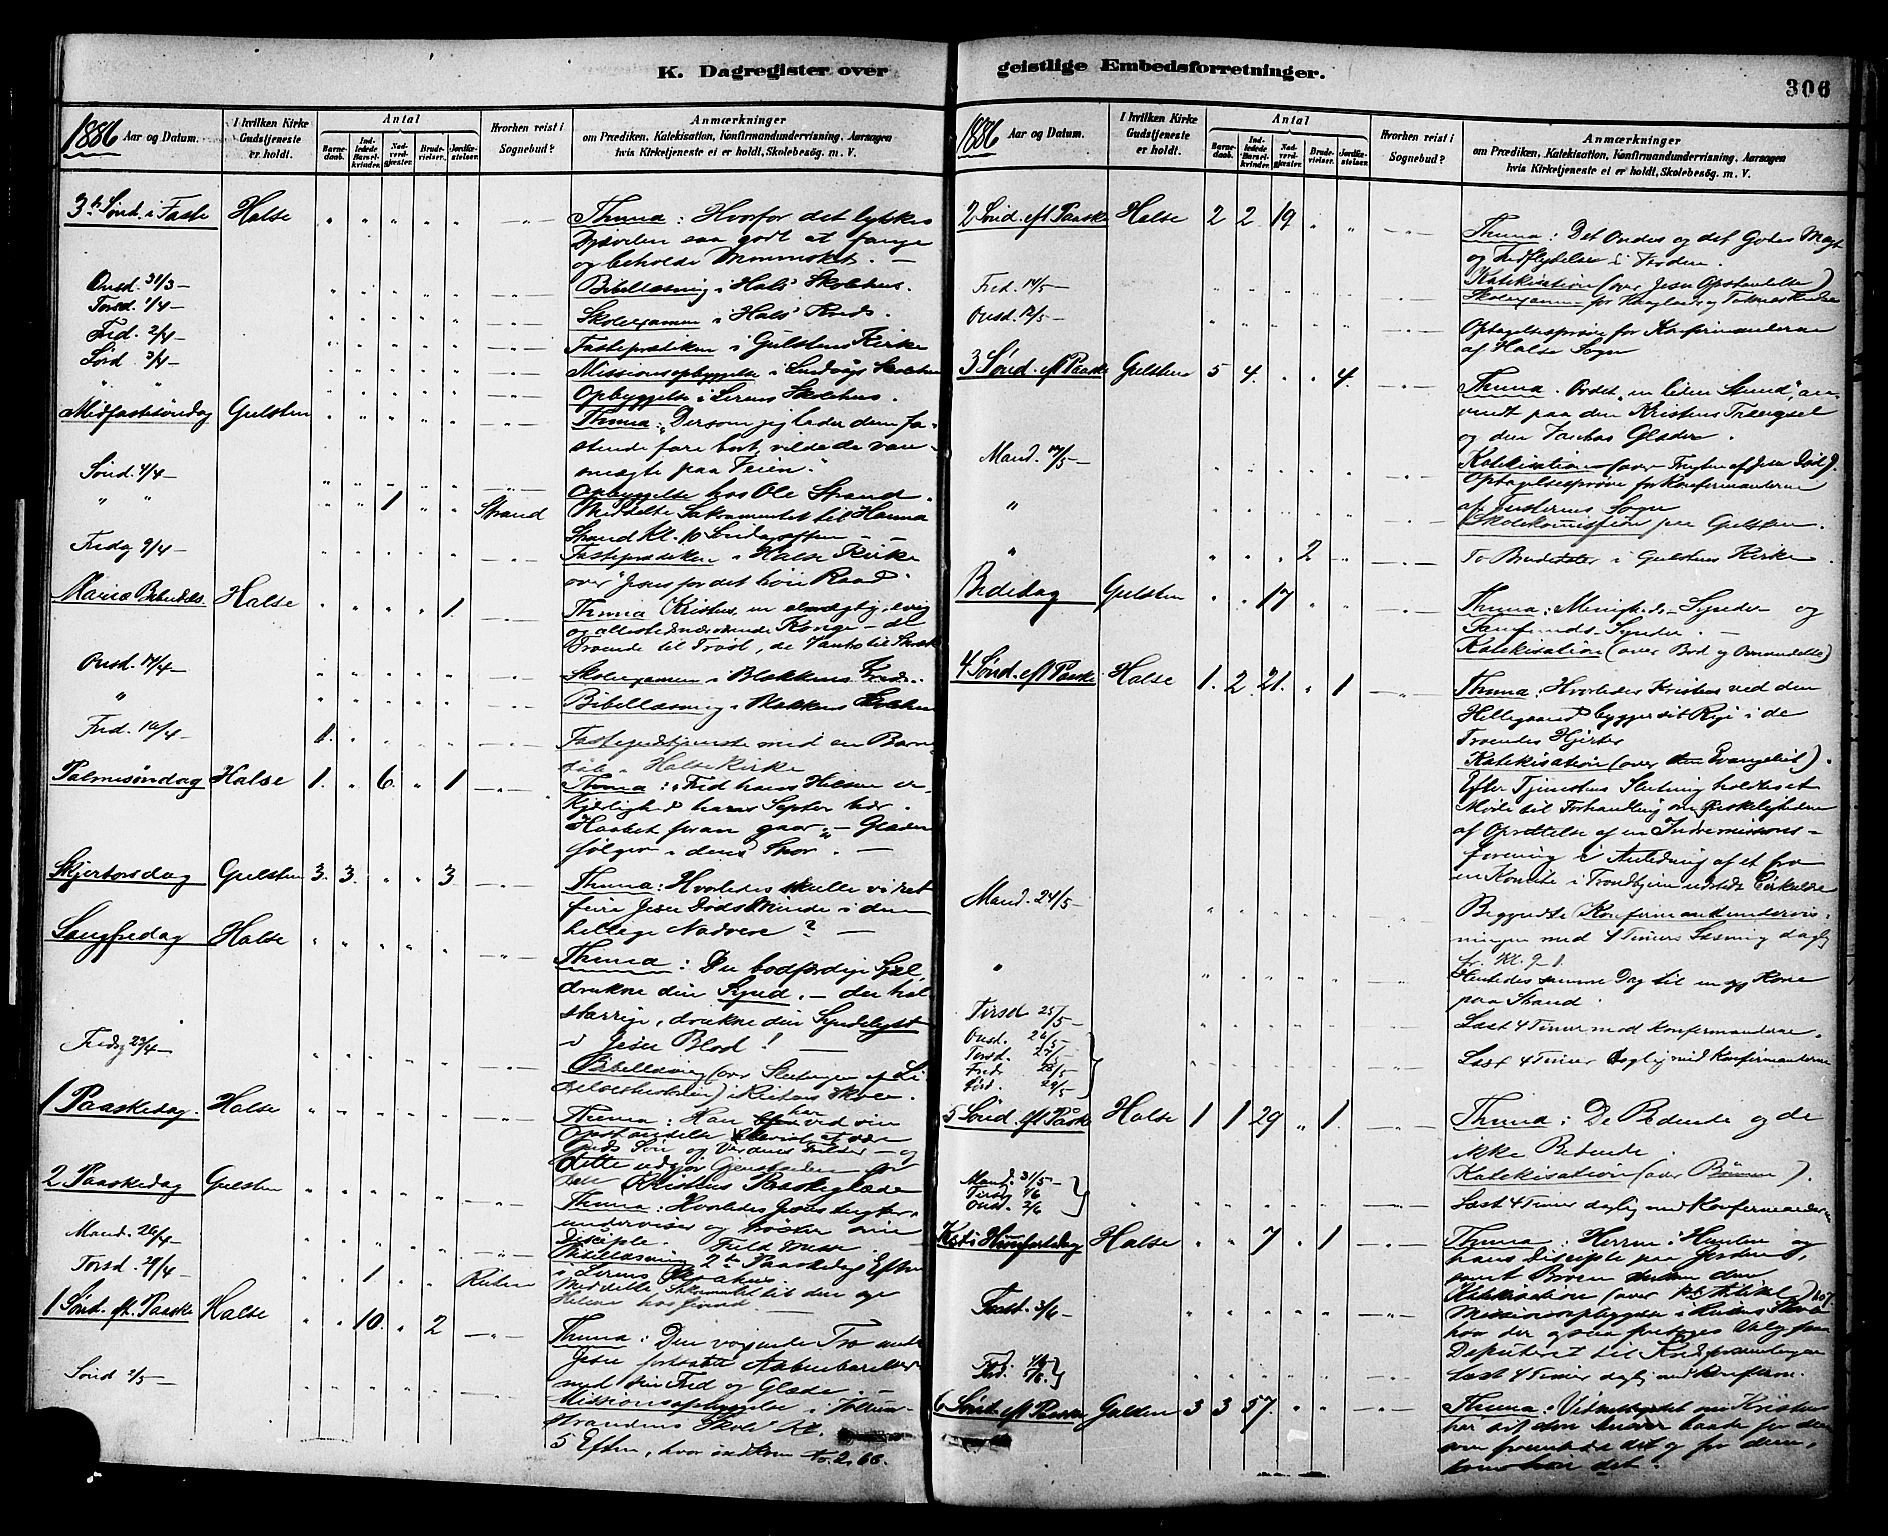 K. Dagregister over
1886 Aar og Datum.
I hvilken Kirke Gudstjeneste er holdt.
Antal
Barnedaab.
Indledede Barselkvinder.
Nadverdgjæster.
Brudevielser.
Jordfæstelser.
Hvorhen reist i Sognebud?
Anmærkninger
om Prædiken, Katekisation, Konfirmandundervisning, Aarsagen
hvis Kirketjeneste ei er holdt, Skolebesøg. m. V.
3die Sønd. i Faste Halse Thema: Hvorfor det lykkes
Djævelen saa godt at fange
og beholde Mennesket. —
Onsd. 31/3 — Bibellæsning i Hals' Skolehus.
Torsd. 1/4 — Skoleexamen i Hals' Kreds.
Fred. 2/4 — Fasteprædiken i Gulsten Kirke
Lørd. 3/4 — Missionsopbyggelse i Skolehus
" " Opbyggelse i Lerens Skolehus.
Midfastesøndag Gulsten Thema: "Dersom jeg lader dem fa-
stende fare bort, vilde de van-
smægte paa Veien."
Sønd. 4/4 — Opbyggelse hos Ole Strand.
" " 1 Strand Meddelte Sakramentet til Hanna
Strand Kl. 10 Søndagaften —
Fredag 9/4 — Fasteprædiken i Halse Kirke
over "Jesus for det høie Raad".
Mariæ Bebudels. Halse 1. Thema Kristus en almægtig, evig
og allestedsnærværende Konge — de
Troende til Trøst, de Vantro til Skræk
Onsd. 14/4 — Skoleexamen i Blekkens Kreds.
" Bibellæsning i Skolehus
Fred. 16/4 — 1. Fastegudstjeneste med en Barne-
daab i Halse Kirke
Palmesøndag Halse 1. 6. 1 Thema: "Fred hans Hilsen er
Kjærlighed hans Septer bær.
Haabet foran gaar, — Glæden
følger i dens Spor. —
Skjertorsdag Gulsten 3. 3. 3 Thema: Hvorledes skulle vi ret
feire Jesu Døds Minde i den
hellige Nadvere? —
Langfredag Halse Thema: Du bodfærdige Sjæl,
drukne din Synd, — du hals-
starrige, drukne din Syndelyst
i Jesu Blod! —
Fredag 23/4 — Bibellæsning (over Slutningen af Li-
delseshistorien) i Skole.
1 Paaskedag. Halse Thema: Han har ved sin
Opstandelse bevist at være
Guds Søn og Verdens Frelser — og
dette udgjør Gjenstanden for
Kristnes Paaskeglæde
2 Paaskedag Gulsten Thema: Hvorledes Jesus
underviser og trøster sine
Disciple.
Mand. 26/4 Bibellæsning 2den Paaskedag Eftm
i Lerens Skolehus.
Torsd. 29/4 — 1 Meddelte Sakramentet til den syge
1 Sønd. eft. Paaske Halse 10. 2 Thema: Den voxende Tro
Jesu fortsatte Aabenbarelser
med sin Fred og Glæde. —
Sønd 2/5 — Missionsopbyggelse i
strandens Skole Kl.
5 Eftm, hvor indkom Kr. 2,66.
geistlige Embedsforretninger.
306
1886 Aar og Datum.
I hvilken Kirke Gudstjeneste er holdt.
Antal
Barnedaab.
Indledede Barselkvinder.
Nadverdgjæster.
Brudevielser.
Jordfæstelser.
Hvorhen reist i Sognebud?
Anmærkninger
om Prædiken, Katekisation, Konfirmandundervisning, Aarsagen
hvis Kirketjeneste ei er holdt, Skolebesøg. m. V.
2 Sønd. eft Paaske Halse 2 2 19 Thema: Det Ondes og det Godes Magt
og Indflydelse i Verden.
Katekisation (over Jesu Opstandelse)
Fred. 14/5 — Skoleexamen for
Onsd. 12/5 — Optagelsesprøve for Konfirmanderne
af Halse Sogn
3 Sønd. eft Paaske Gulsten 5 4. 4. Thema. Ordet "en liden Stund", an-
vendt paa den Kristnes Trængsel
og den Vantros Glæder.
Katekisation (over Frugten af Jesu Død).
Mand. 17/5 — Optagelsesprøve for Konfirmanderne
af Sogn
" Skolekommission paa Gulsten.
" 2 To Brudevielser i Gulstens Kirke
Bededag Gulsten 17 Thema: Menigheds-Synder og
Samfunds-Synder. —
Katekisation (over Bod og Omvendelse)
4 Sønd. eft Paaske Halse 1. 2 21. 1 Thema: Hvorledes Kristus ved den
Helligaand bygger sit Rige i de
Troendes Hjerter
Katekisation (over Evangeliet).
Efter Tjenestens Slutning holdtes et
Møde til Forhandling om Ønskeligheden
af Oprettelse af en Indremissions-
forening i Anledning af et fra
en Komite i Trondhjem udstedt Cirkulære
Mand. 24/5 — Begyndte Konfirmandundervis-
ningen med 4 Timers Læsning daglig
fr. Kl. 9-1.
" Hentedes samme Dag til en syg Kone
paa Strand.
Tirsd 25/5 — Læst 4 Timer med Konfirmanderne.
Onsd. 26/5 —
Torsd. 27/5 —
Fred. 28/5
Lørd. 29/5 Læst 4 Timer daglig med Konfirmanderne
5 Sønd. eft Paaske Halse 1 1 29 1. Thema: De Bedende og de
ikke Bedende.
Katekisation (over Bønnen).
Mand. 31/5 —
Tirsd 1/6
Onsd. 2/6 Læst 4 Timer daglig med Konfirmanderne
Kristi Himmelfartsdag Halse 7 1 Thema: Herren i Himlen og
hans Disciple paa Jorden,
samt Broen mellem dem
Katekisation (over Artikel)
Torsd. 3/6 — Missionsopbyggelse i
hvor der ogsaa foretoges Valg paa
Deputeret til Kredsforsamlingen
Fred. 4/6
5/6 Læst 4 Timer daglig med Konfirm.
6 Sønd. eft Paaske Gulsten 3 3 57. Thema: Vidnesbyrdet om Kristus
har sit den baade for dem
som frembære det og for dem,
som høre det.